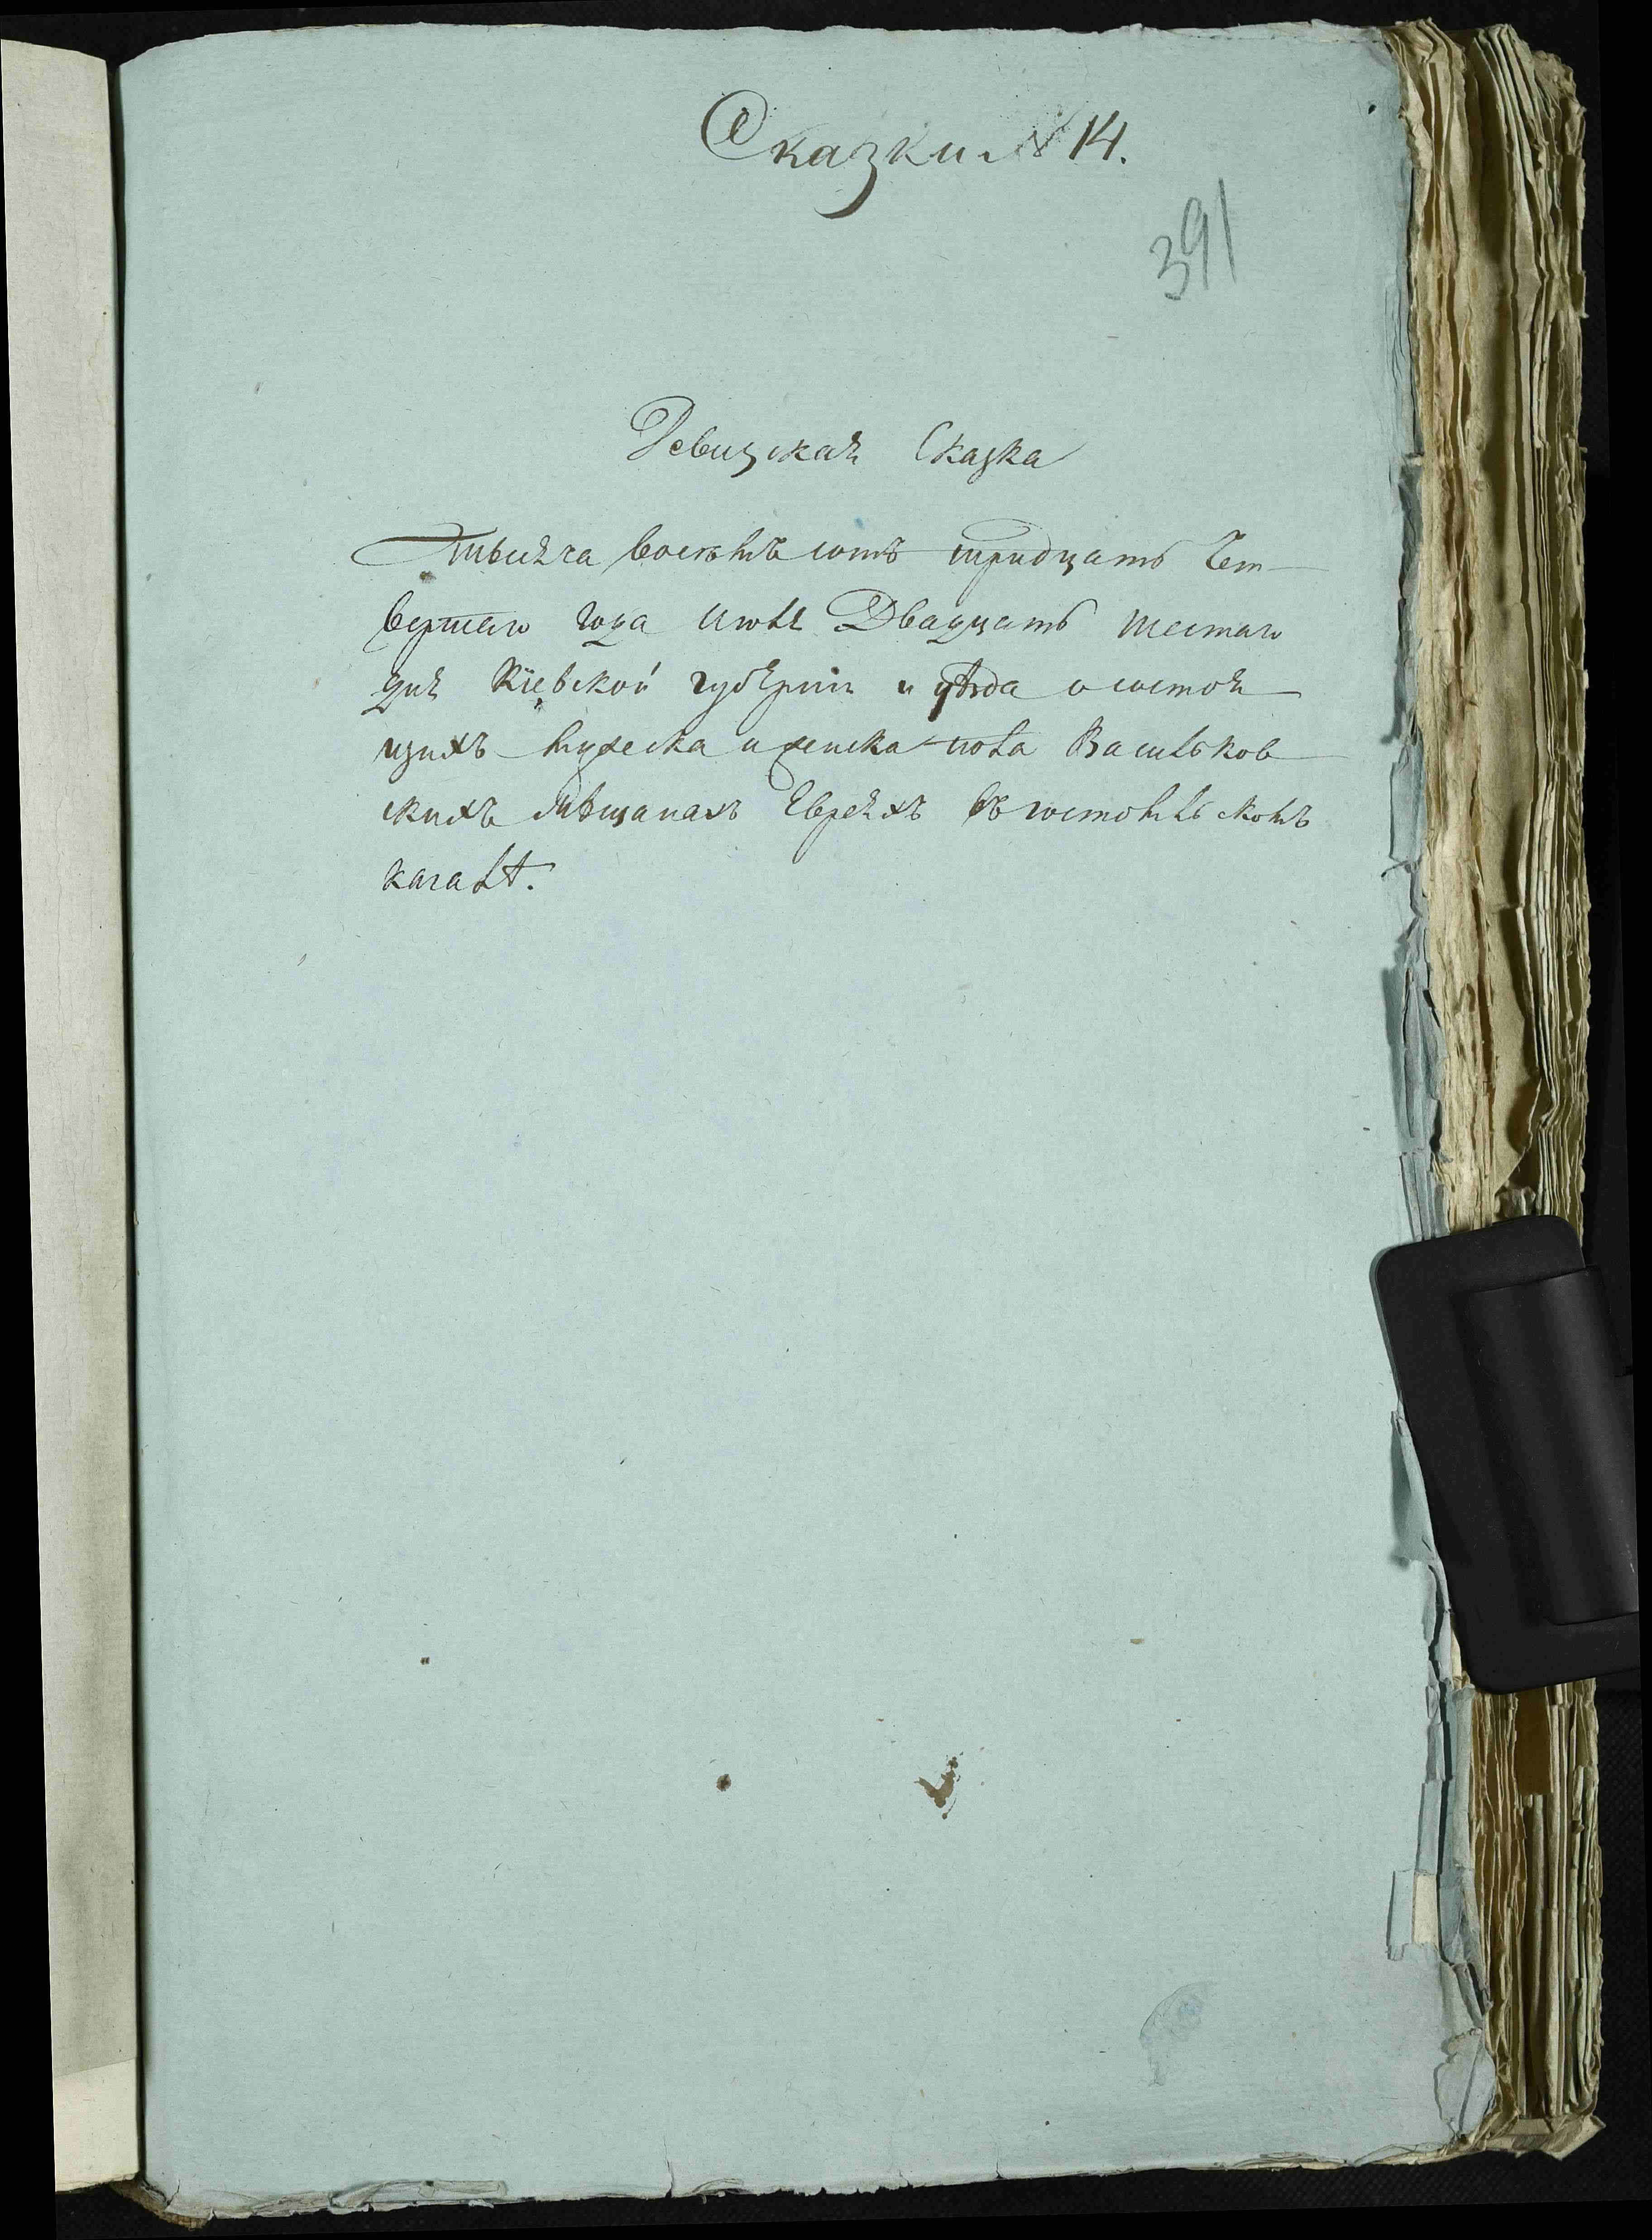 Сказки № 14.
391
Ревизская Сказка
Тысяча восемъ сотъ тридцать Чет-
вертаго года июля Двадцать шестаго
дня Кіевской губерніи и уѣзда о состоя
щихъ мужеска и женска пола Васильков
скихъ Мѣщанахъ Евреяхъ въ гостомльскомъ
кагалѣ.